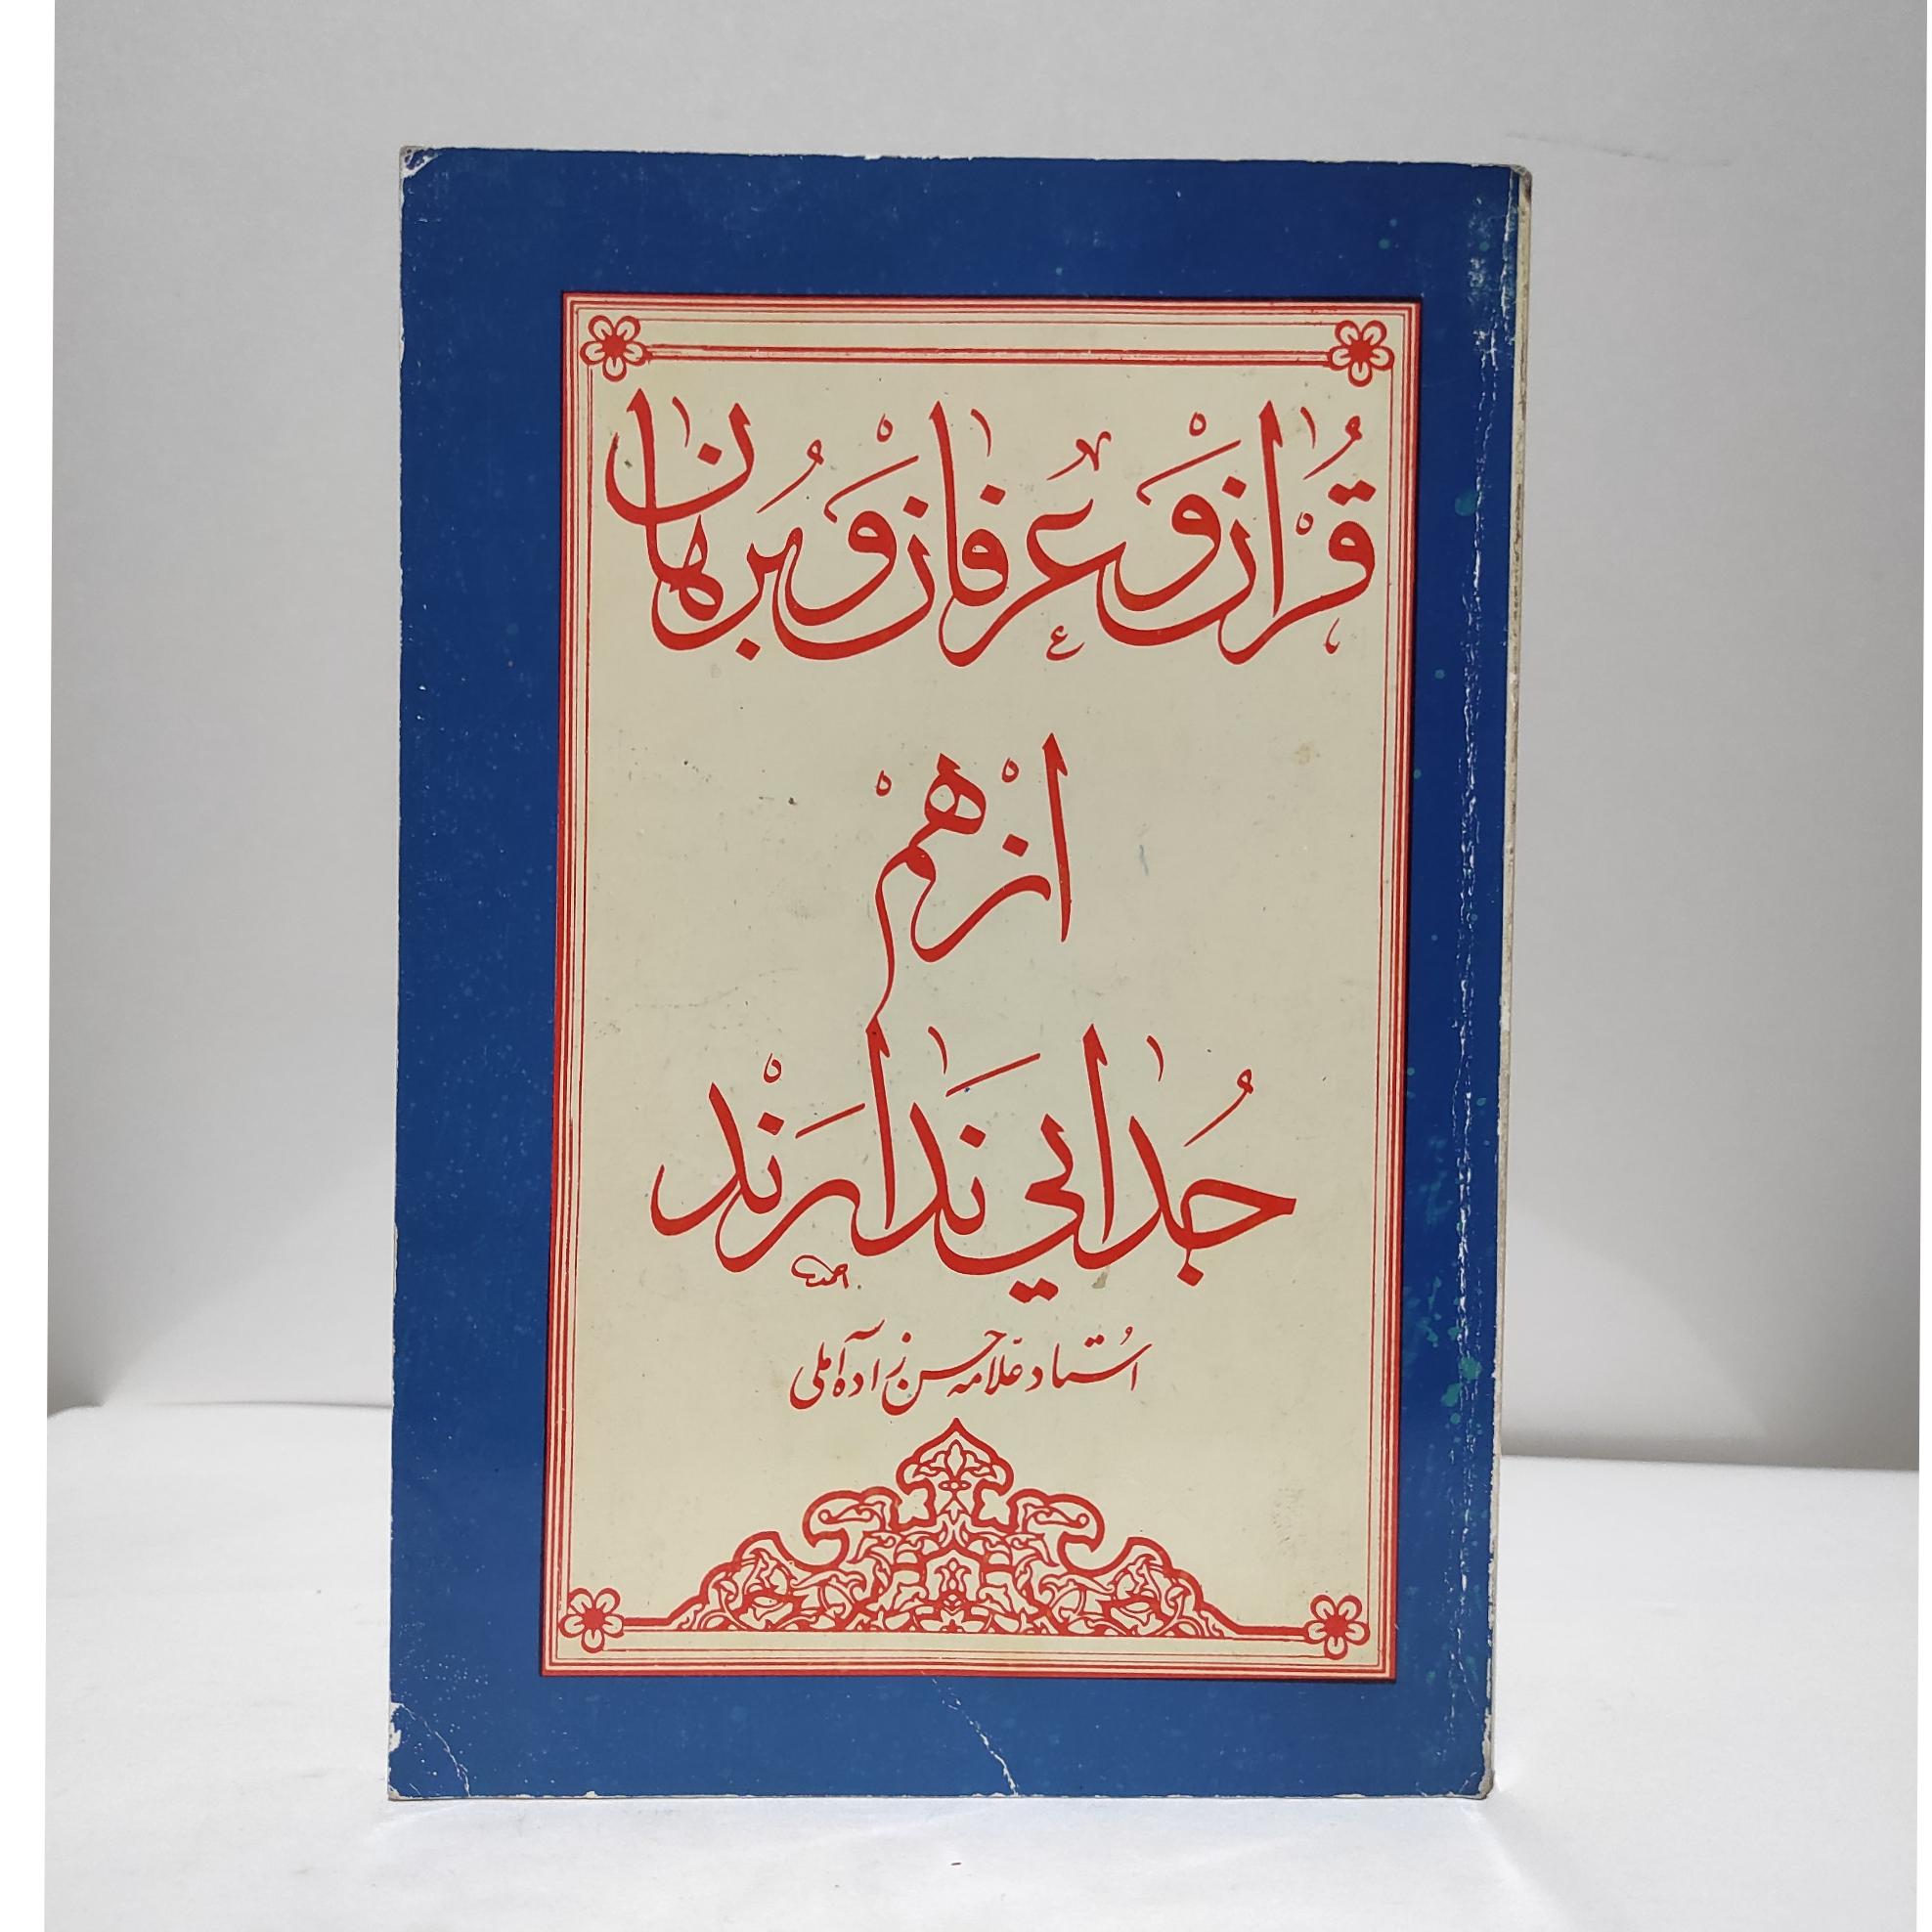 قُرْاٰن وَ عِرفٰان وَ بُرهٰان
اَزْ هَمْ
جُدٰایي نَدٰارَنْدْ
اُستاد علّامه حسن زاده آملی